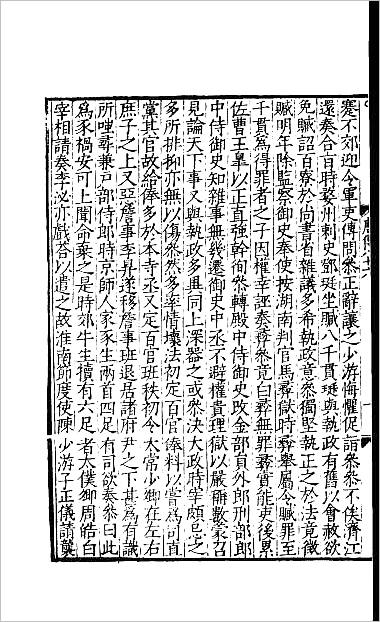 蹇不郊迎令軍吏傳問叅正辭讓之少游悔懼促詣叅叅不俟濟江
還奏合旨時婺州刺史鄧珽坐贓八千貫珽與執政有舊以會赦欲
免贓詔百寮於尚書省雜議多希執政意叅獨堅執正之於法竟徵
贓明年除監察御史奉使按湖南判官馬彝獄時彝舉屬令贓罪至
千貫為得罪者之子因權幸誣奏彝叅竟白彝無罪彝實能吏後累
佐曹王皐以正直強幹聞叅轉殿中侍御史改金部員外郎刑部郎
中侍御史知雜事無幾遷御史中丞不避權貴理獄以嚴稱數蒙召
見論天下事又與執政多異同上深器之或叅決大政時宰頗忌之
多所排抑亦無以傷叅然多率情壞法初定百官俸料以嘗為司直
黨其官故給俸多於本寺丞又定百官班秩初令太常少卿在左右
庶子之上又惡詹事李昇遂移詹事班退居諸府尹之下甚為有識
所嗤尋兼戶部侍郎時京師人家豕生兩首四足有司欲奏叅曰此
為豕禍安可上聞命棄之是時郊牛生犢有六足者太僕卿周皓白
宰相請奏李泌亦戲答以遣之故淮南節度使陳少游子正儀請襲